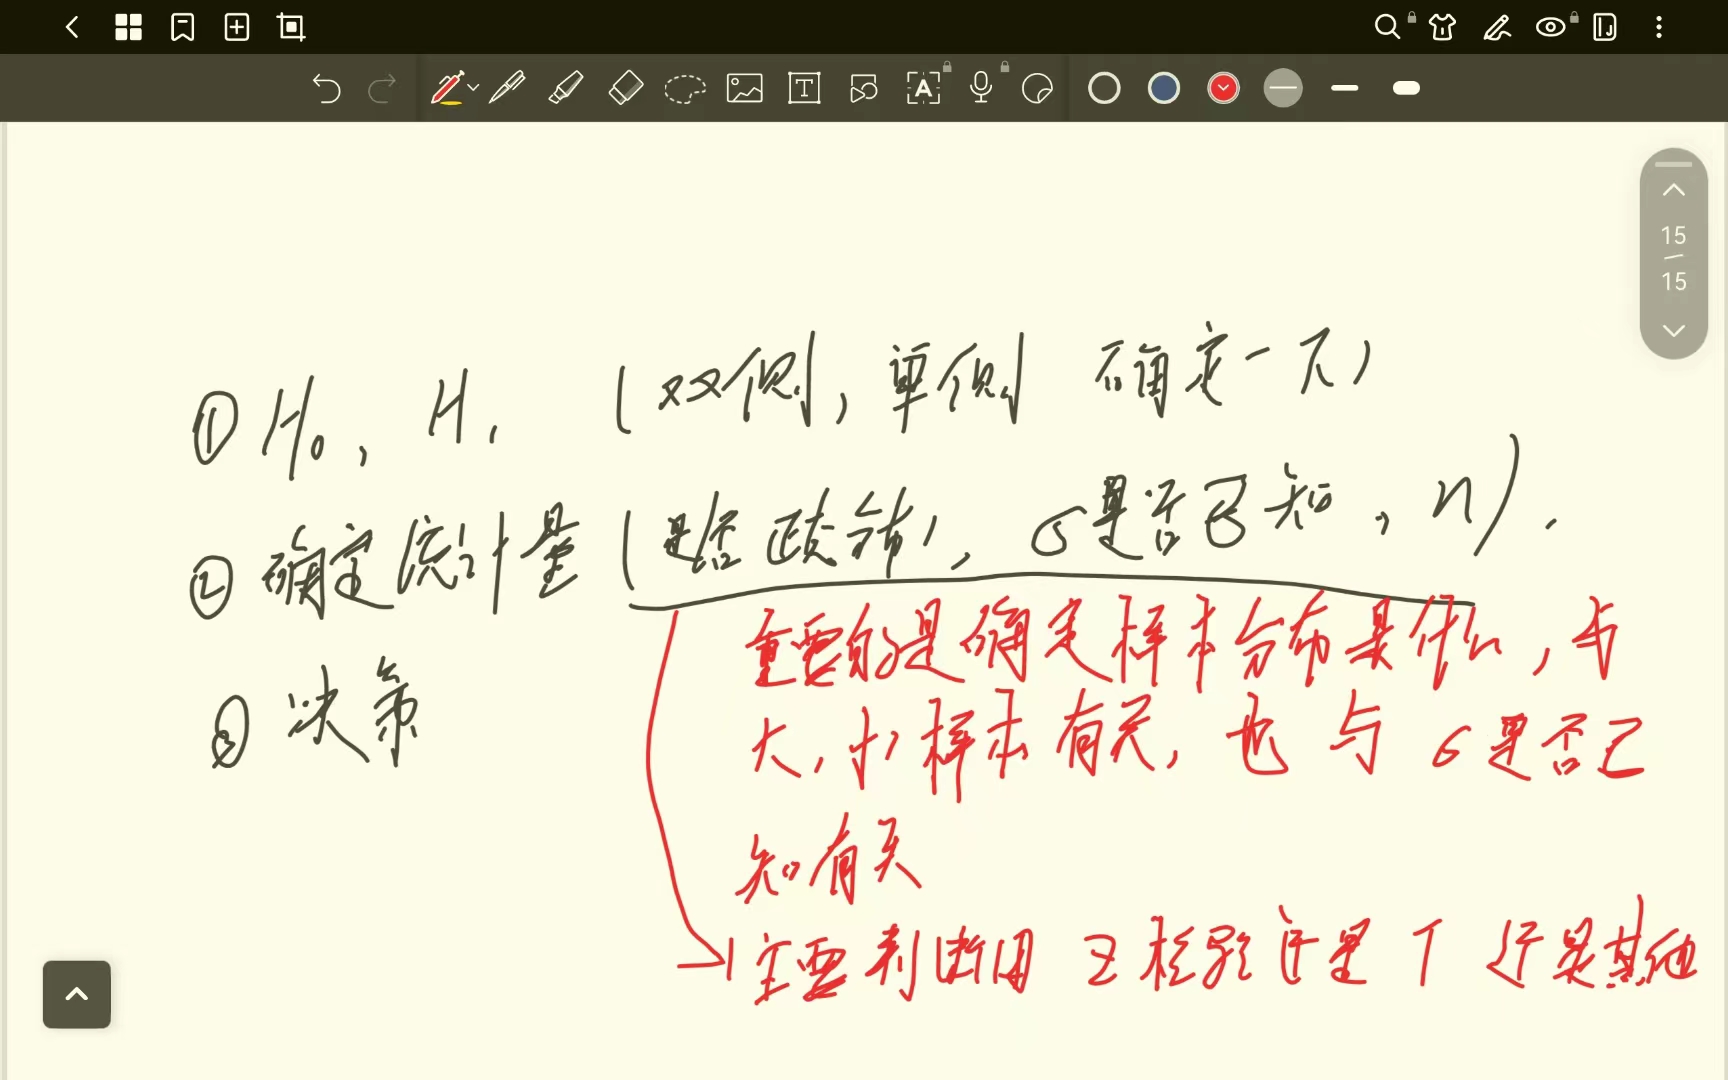 15
15
① H₀, H₁ (双侧, 单侧 确定一下)
② 确定统计量 (是否正态分布, σ是否已知, n).
重要的是确定样本分布是什么, 与
③ 决策
大, 小样本有关, 也与 σ是否已
知有关
主要判断用 Z检验还是 T 还是其他